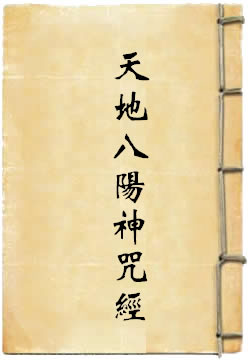 天地八陽神咒經